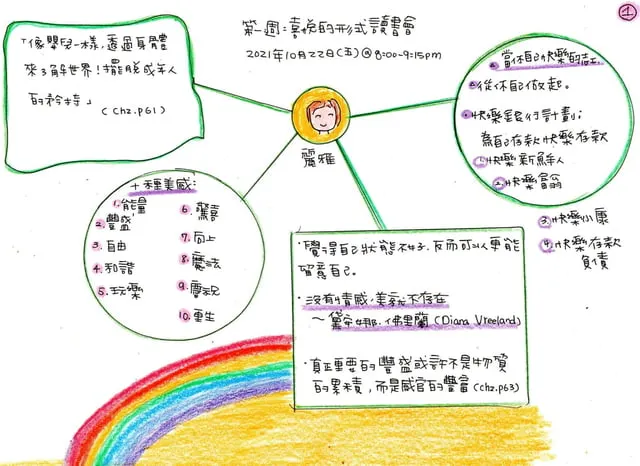 ①
第一週:喜悅的形式讀書會
2021年10月22日(五)@8:00-9:15pm
「像嬰兒一樣,透過身體
來了解世界!擺脫成年人
的矜持」
(ch2.p61)
麗雅
當你自己快樂的
從你自己做起。
快樂銀行計劃:
為自己存款快樂存款
①快樂新鮮人
②快樂富翁
③快樂小康
④快樂存款
負債
十種美感:
1.能量
2.豐盛
3.自由
4.和諧
5.玩樂
6.驚喜
7.向上
8.魔法
9.慶祝
10.重生
·覺得自己狀態不好,反而可以更能
留意自己。
·沒有情感,美就不存在
~黛安娜.佛里蘭(Diana Vreeland)
·真正重要的豐盛或許不是物質
的累積,而是感官的豐富(ch2.p63)